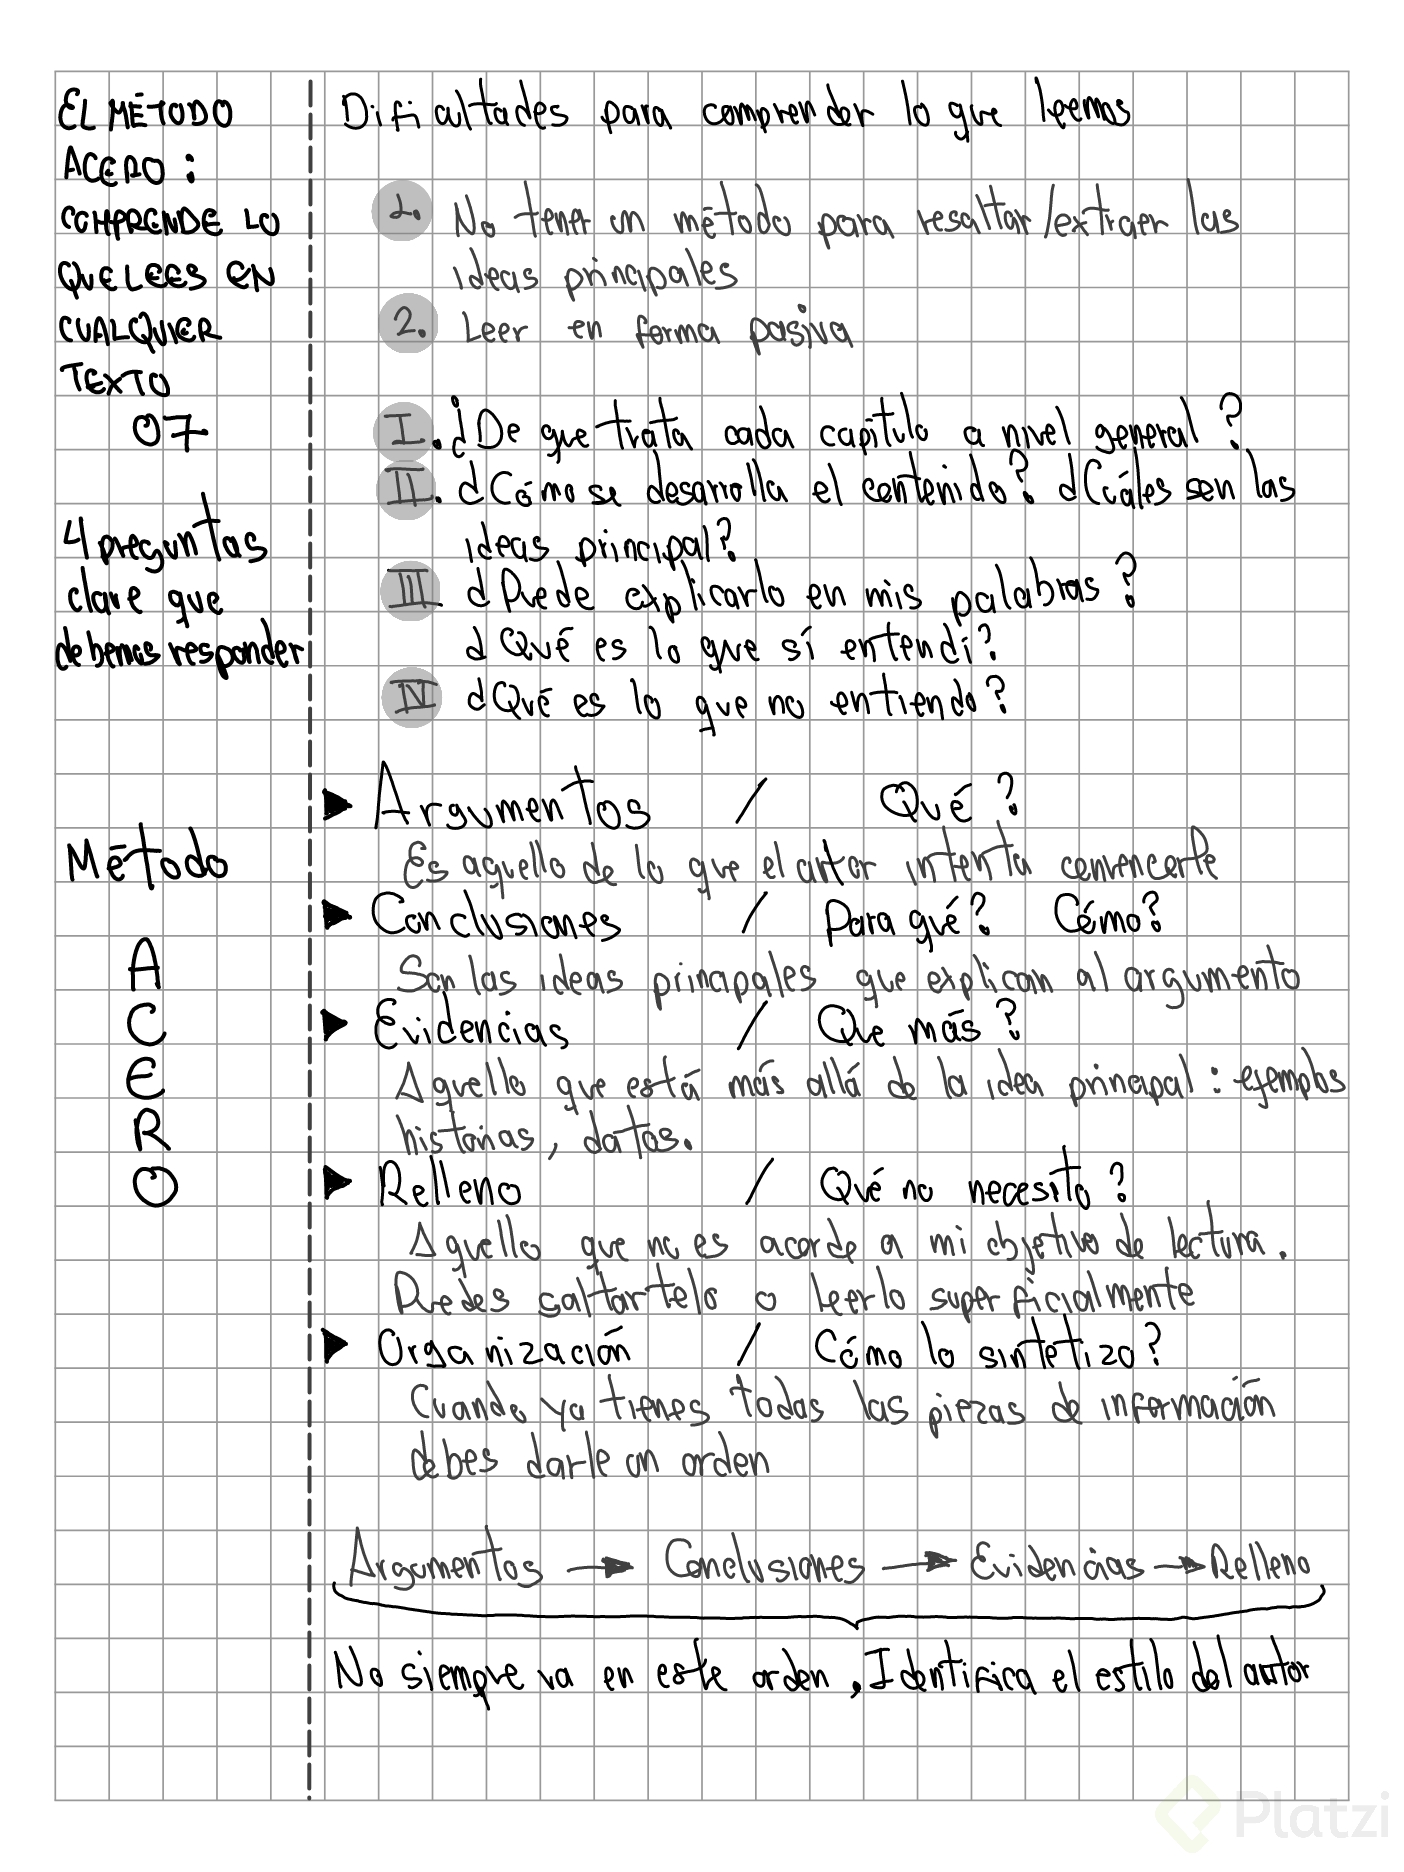 EL MÉTODO
ACERO :
COMPRENDE LO
QUE LEES EN
CUALQUIER
TEXTO
07
Dificultades para comprender lo que leemos
1. No tener un método para resaltar/extraer las
ideas principales
2. Leer en forma pasiva
4 preguntas
clave que
debemos responder
I. ¿De que trata cada capítulo a nivel general?
II. ¿Cómo se desarrolla el contenido? ¿Cuáles son las
ideas principal?
III ¿Puede explicarlo en mis palabras?
¿Qué es lo que sí entendí?
IV ¿Qué es lo que no entiendo?
Método
A
C
E
R
O
► Argumentos / Qué?
Es aquello de lo que el autor intenta convencerte
► Conclusiones / Para qué? Cómo?
Son las ideas principales que explican al argumento
► Evidencias / Que más?
Aquello que está más allá de la idea principal: ejemplos
historias, datos.
► Relleno / Qué no necesito?
Aquello que no es acorde a mi objetivo de lectura.
Puedes saltartelo o leerlo superficialmente
► Organización / Cómo lo sintetizo?
Cuando ya tienes todas las piezas de información
debes darle un orden
Argumentos → Conclusiones → Evidencias → Relleno
No siempre va en este orden, Identifica el estilo del autor
Platzi